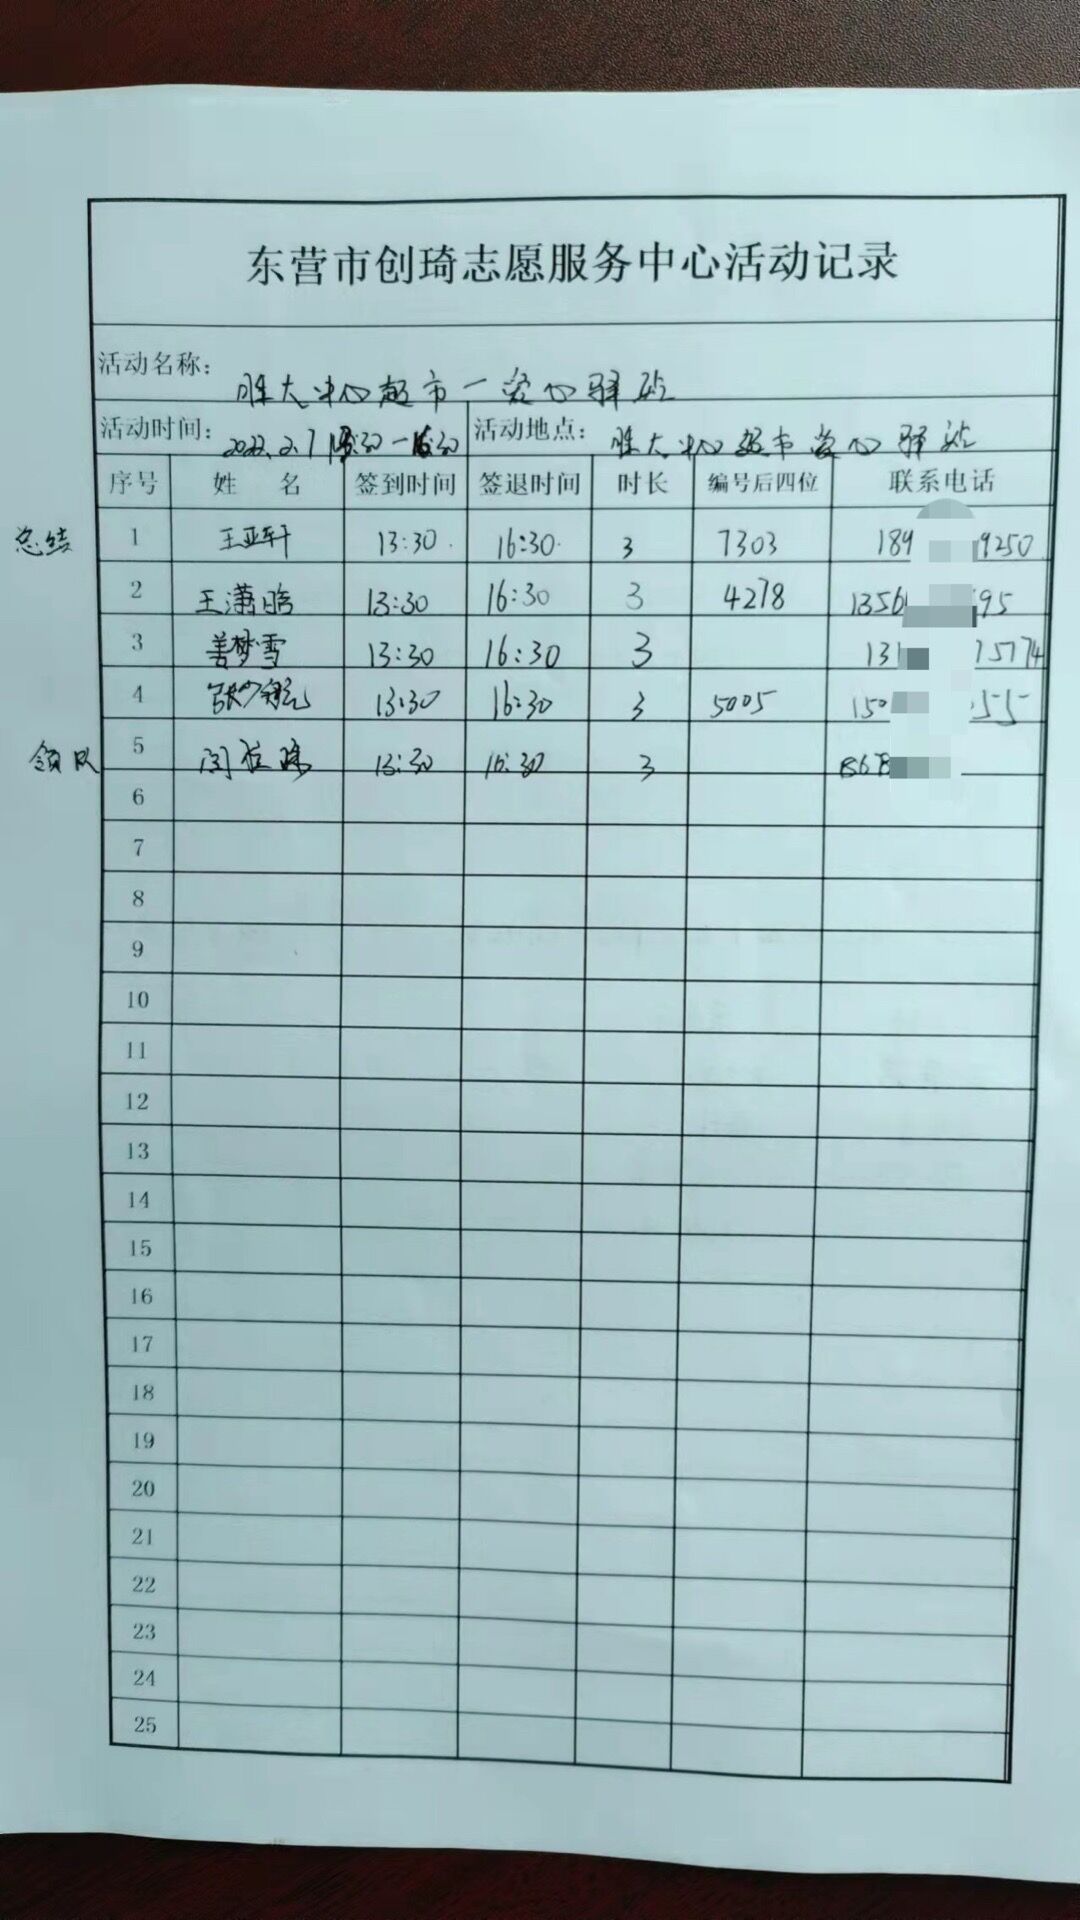 东营市创琦志愿服务中心活动记录
活动名称： 胜大中心超市一爱心驿站
活动时间： 2022.2.7 13:30—16:30 活动地点： 胜大中心超市爱心驿站
序号 姓 名 签到时间 签退时间 时长 编号后四位 联系电话
总结 1 王亚轩 13:30 16:30 3 7303 189 9250
2 王潇晗 13:30 16:30 3 4278 1356 95
3 姜梦雪 13:30 16:30 3 13 15174
4 13:30 16:30 3 5005 150 555
领队 5 13:30 16:30 3
6
7
8
9
10
11
12
13
14
15
16
17
18
19
20
21
22
23
24
25